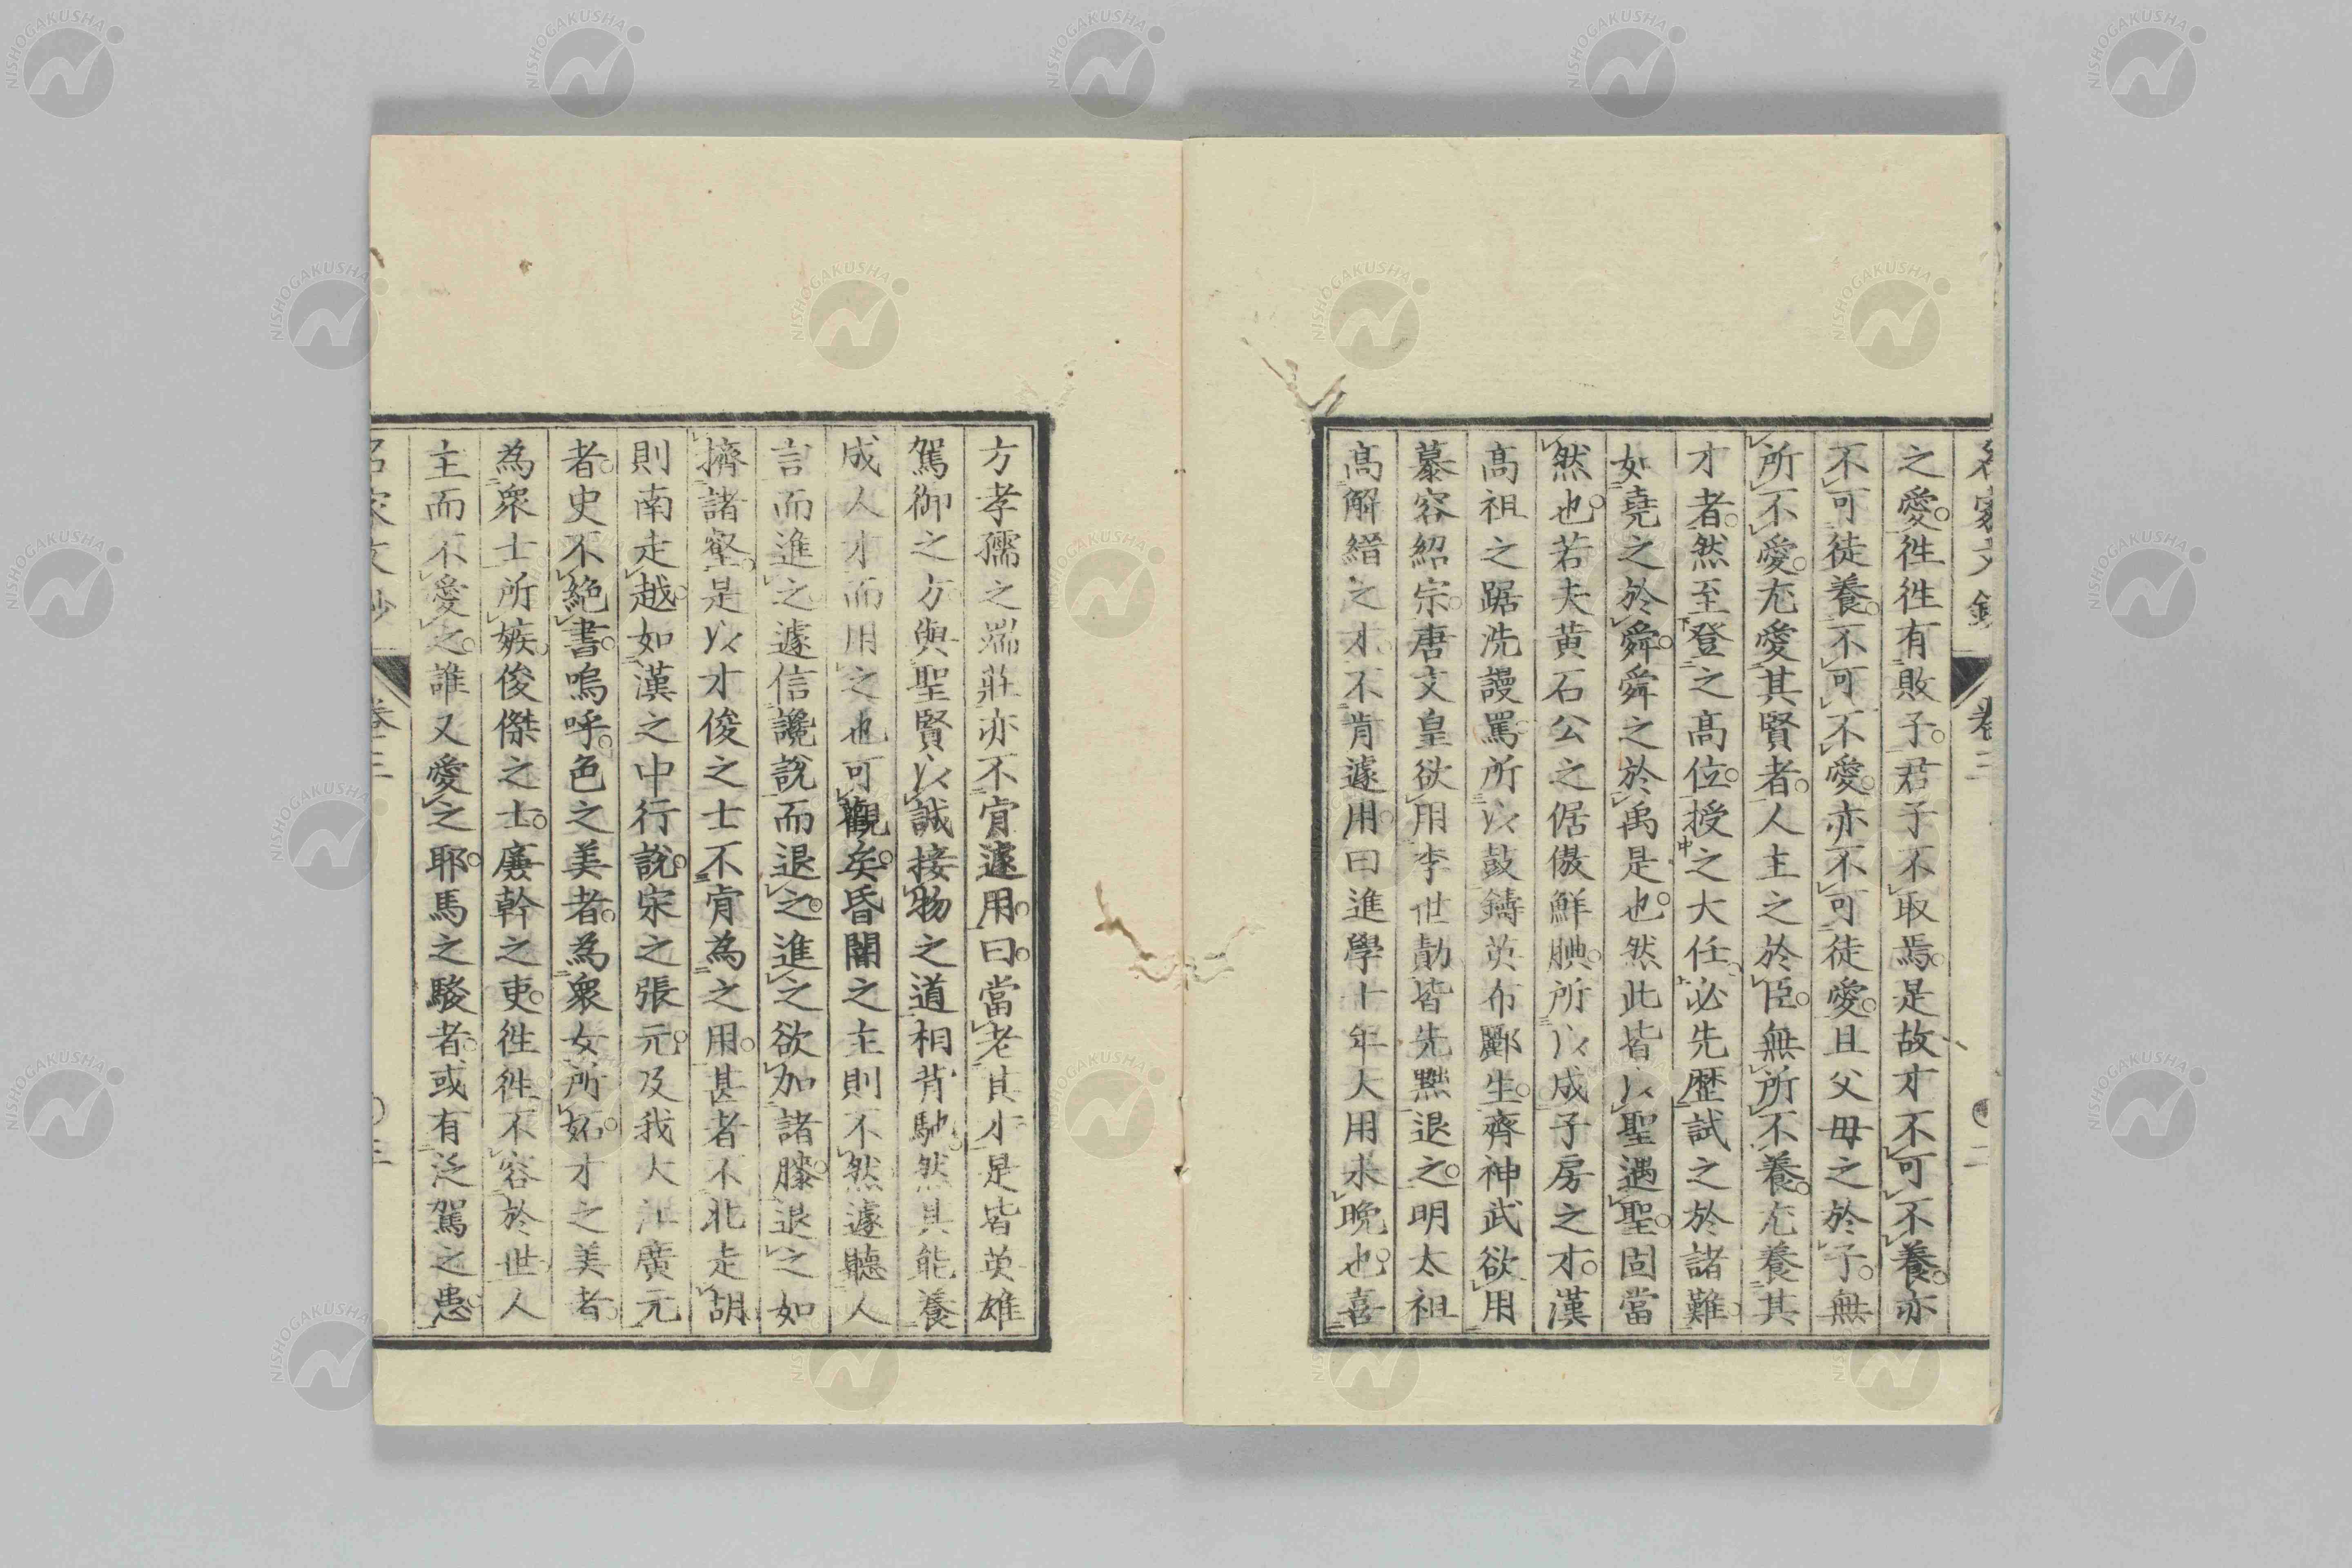 名家文鈔 卷三 二
之愛徃徃有敗子君子不取焉是故才不可不養亦
不可徒養不可不愛亦不可徒愛且父母之於子無
所不愛尤愛其賢者人主之於臣無所不養尤養其
才者然至登之高位授之大任必先歷試之於諸難
如堯之於舜舜之於禹是也然此皆以聖遇聖固當
然也若夫黃石公之倨傲鮮腆所以成子房之才漢
高祖之踞洗謾罵所以鼓鑄英布酈生齊神武欲用
慕容紹宗唐文皇欲用李世勣皆先黜退之明太祖
高解縉之才不肯遽用曰進學十年大用未晚也喜
方孝孺之端莊亦不肯遽用曰當老其才是皆英雄
駕御之方與聖賢以誠接物之道相背馳然其能養
成人才而用之也可觀矣昏闇之主則不然遽聽人
言而進之遽信讒說而退之進之欲加諸膝退之如
擠諸壑是以才俊之士不肯為之用甚者不北走胡
則南走越如漢之中行說宋之張元及我大江廣元
者史不絕書嗚呼色之美者為衆女所妬才之美者
為衆士所嫉俊傑之士廉幹之吏徃徃不容於世人
主而不愛之誰又愛之耶馬之駿者或有泛駕之患
名家文鈔 卷三 三
NISHOGAKUSHA